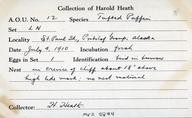 Collection of Harold Heath
A.O.U. No. 12 Species Tufted Puffin
Set
Locality St. Paul Is., Pribilof Group, Alaska
Date July 4, 1910 Incubation fresh
Eggs in Set 1 Identification bird in burrow
Nes in crevice of cliff about 18' above
high tide mark; no nest material
Collector: H Heath